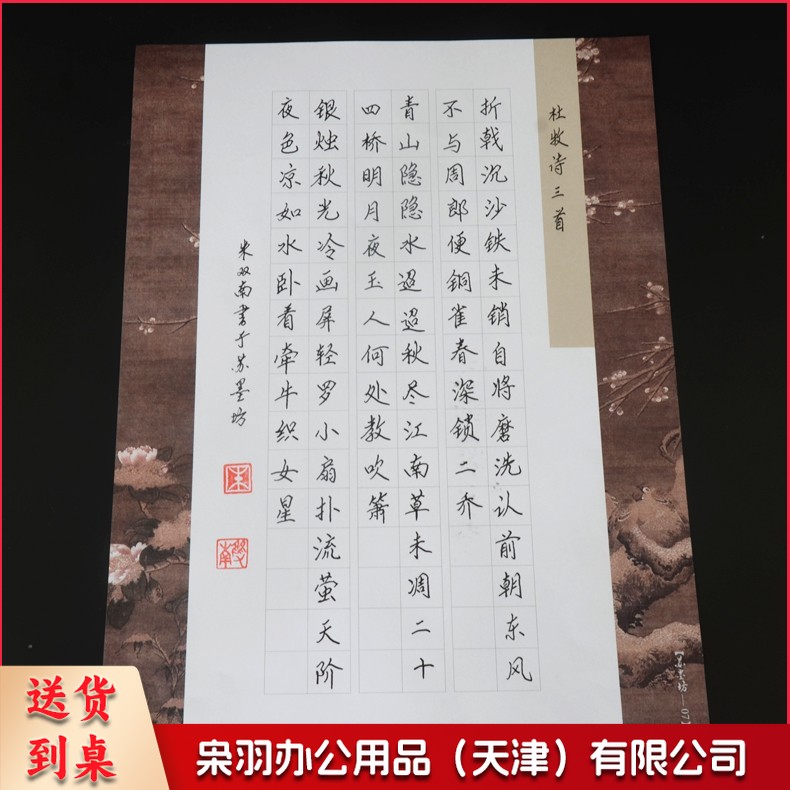 杜牧诗三首
折戟沉沙铁未销自将磨洗认前朝东风
不与周郎便铜雀春深锁二乔
青山隐隐水迢迢秋尽江南草未凋二十
四桥明月夜玉人何处教吹箫
银烛秋光冷画屏轻罗小扇扑流萤天阶
夜色凉如水卧看牵牛织女星
双南书于苏墨坊
南
送货
到桌
枭羽办公用品（天津）有限公司